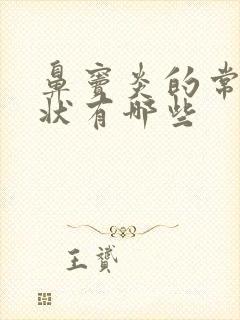 鼻窦炎的常
状有哪些
王赟